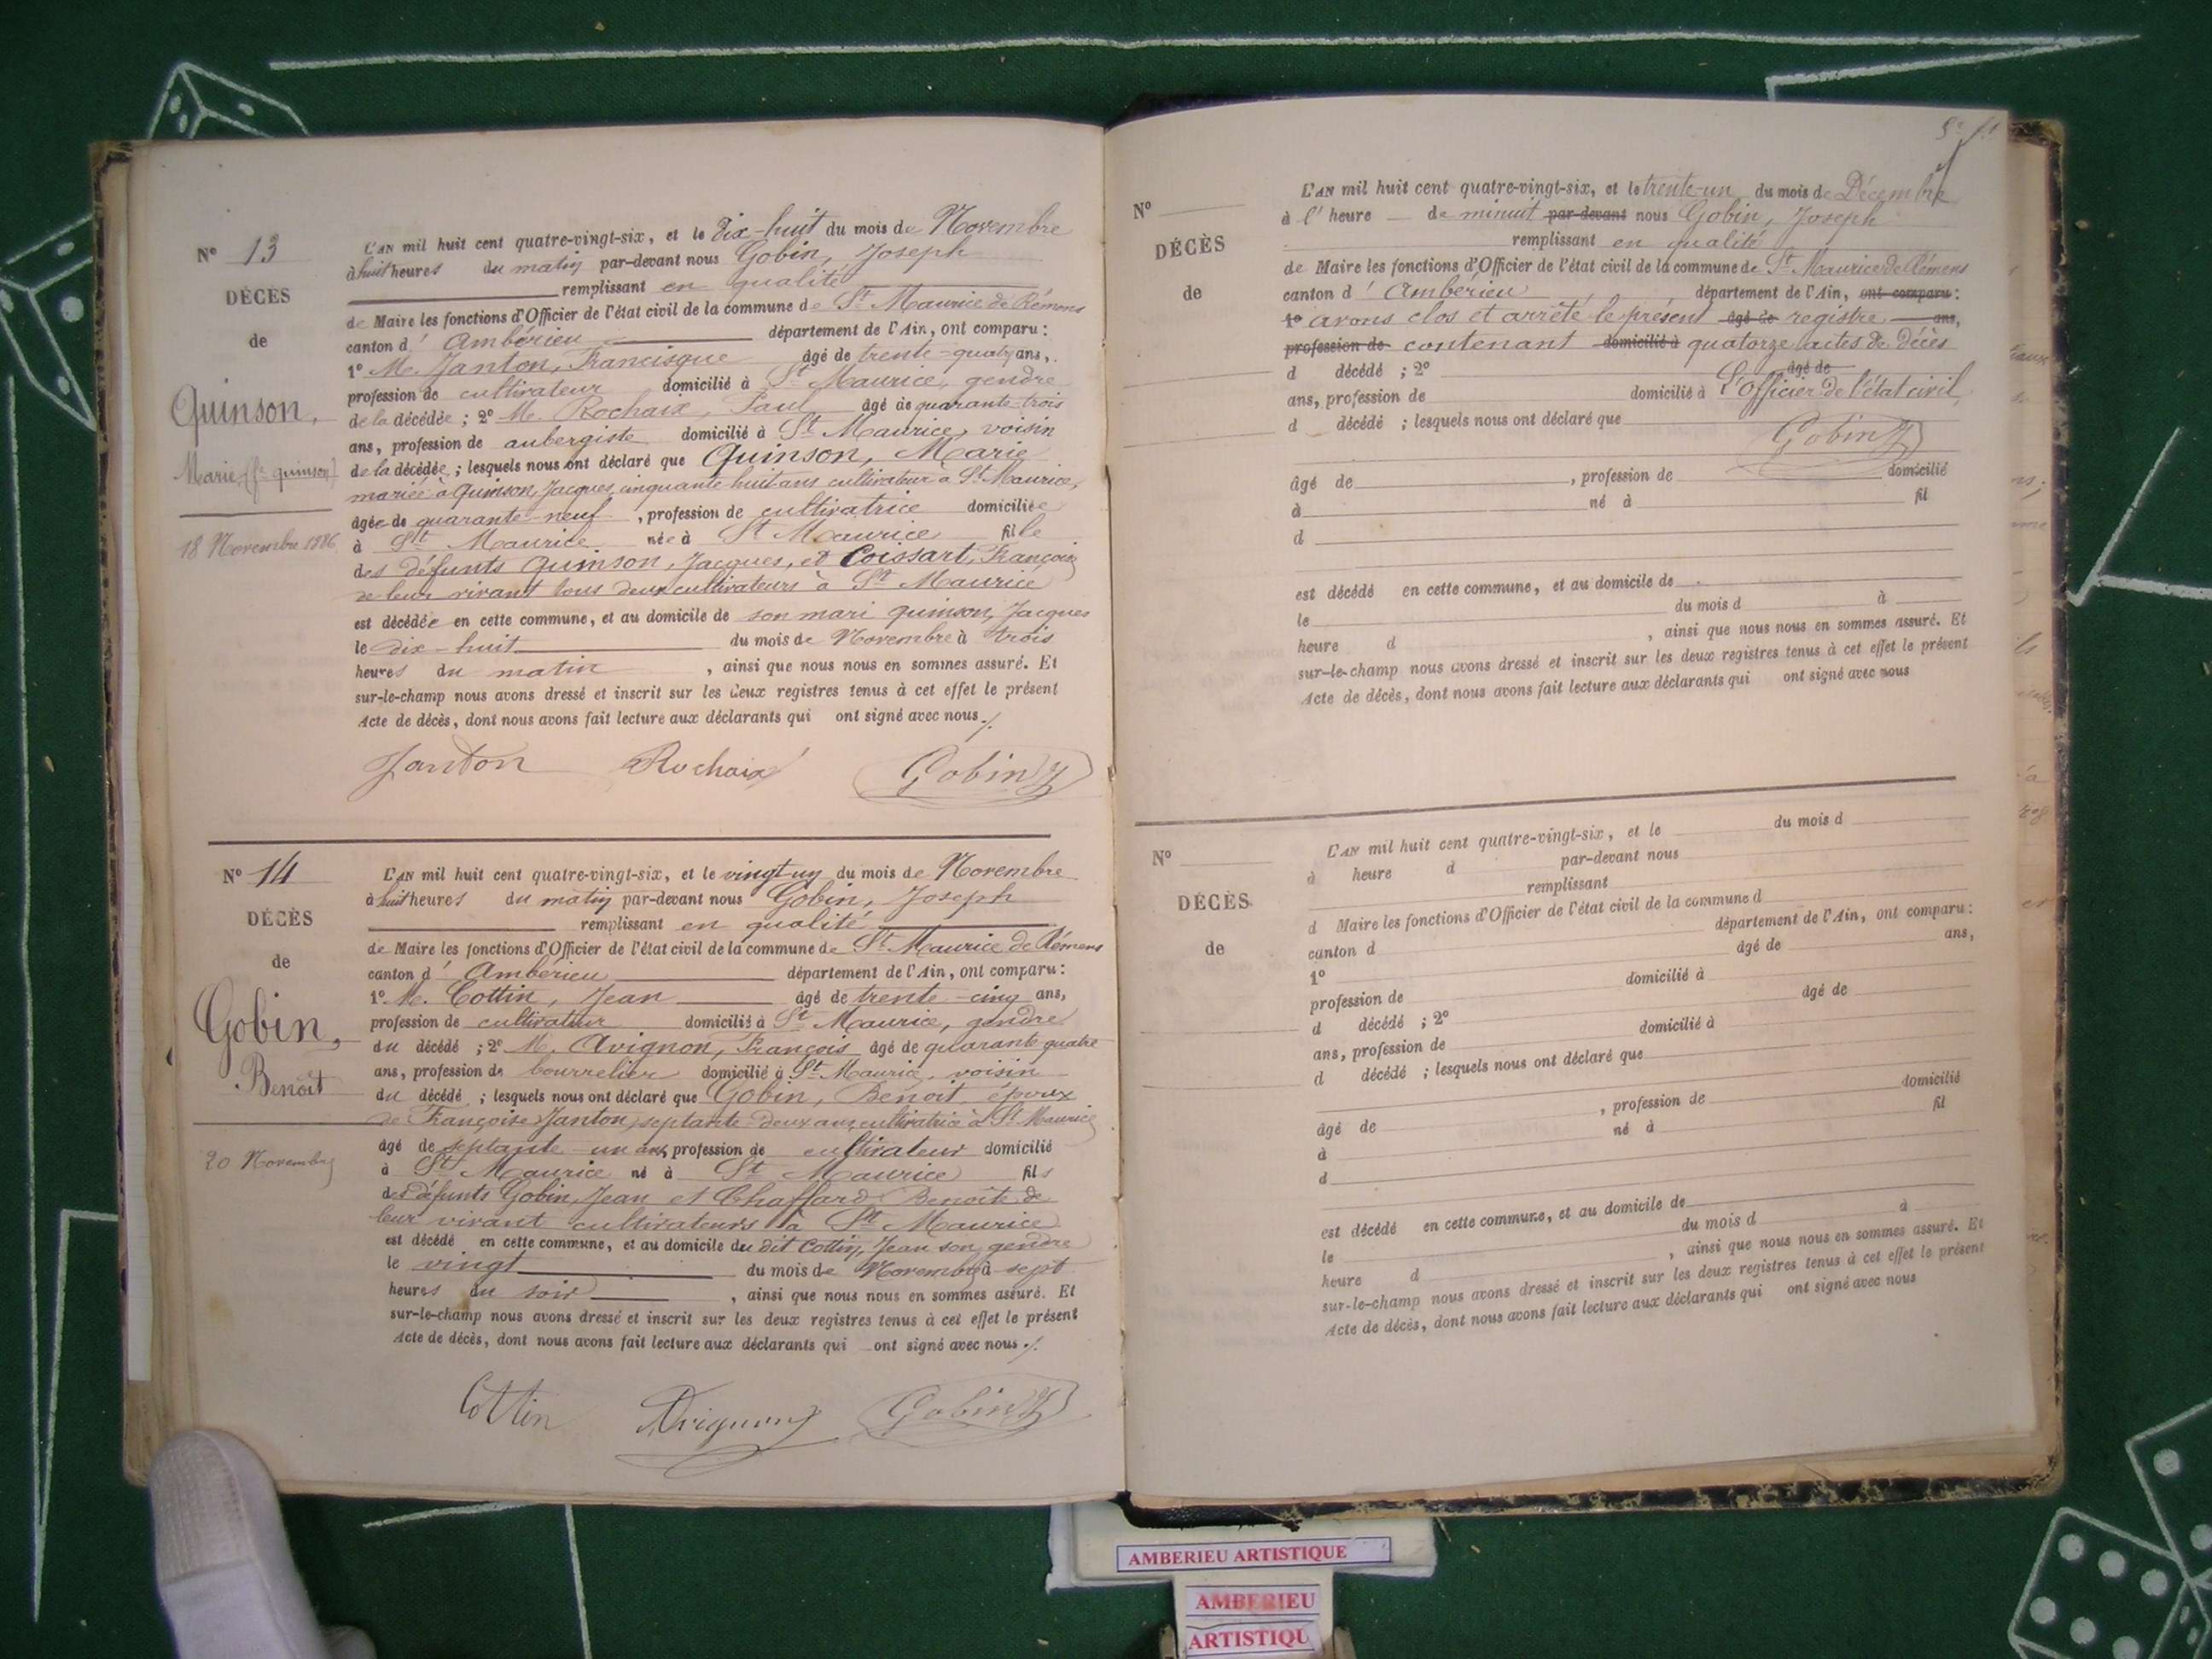 Nº 13
DÉCÈS
de
Quinson,
Marie (fe quinson)
18 Novembre 1886
L'AN mil huit cent quatre-vingt-six, et le Dix-huit du mois de Novembre
à huit heures du matin par-devant nous Gobin, Joseph
remplissant en qualité
de Maire les fonctions d'Officier de l'état civil de la commune de St Maurice de Rémens
canton d' Ambérieu département de l'Ain, ont comparu :
1º M. Janton, Francisque âgé de trente-quatre ans,
profession de cultivateur domicilié à St Maurice, gendre
de la décédée ; 2º M. Rochaix, Paul âgé de quarante-trois
ans, profession de aubergiste domicilié à St Maurice, voisin
de la décédée ; lesquels nous ont déclaré que Quinson, Marie
mariée à Quinson, Jacques, cinquante huit ans cultivateur à St Maurice,
âgée de quarante-neuf , profession de cultivatrice domiciliée
à St Maurice née à St Maurice fille
des défunts Quinson, Jacques, et Coissart, Françoise
de leur vivant tous deux cultivateurs à St Maurice
est décédée en cette commune, et au domicile de son mari quinson, Jacques
le dix-huit du mois de Novembre à trois
heures du matin , ainsi que nous nous en sommes assuré. Et
sur-le-champ nous avons dressé et inscrit sur les deux registres tenus à cet effet le présent
Acte de décès, dont nous avons fait lecture aux déclarants qui ont signé avec nous ./.
Janton Rochaix Gobin J
Nº 14
DÉCÈS
de
Gobin,
Benoît
20 Novembre
L'AN mil huit cent quatre-vingt-six, et le vingt un du mois de Novembre
à huit heures du matin par-devant nous Gobin, Joseph
remplissant en qualité
de Maire les fonctions d'Officier de l'état civil de la commune de St Maurice de Rémens
canton d' Ambérieu département de l'Ain, ont comparu :
1º M. Cottin, Jean âgé de trente-cinq ans,
profession de cultivateur domicilié à St Maurice, gendre
du décédé ; 2º M. Avignon, François âgé de quarante quatre
ans, profession de bourrelier domicilié à St Maurice, voisin
du décédé ; lesquels nous ont déclaré que Gobin, Benoit époux
de Françoise Janton, septante-deux ans, cultivatrice à St Maurice
âgé de septante-un ans, profession de cultivateur domicilié
à St Maurice né à St Maurice fils
des défunts Gobin, Jean et Chaffard Benoîte de
leur vivant cultivateurs à St Maurice
est décédé en cette commune, et au domicile du dit Cottin, Jean son gendre
le vingt du mois de Novembre à sept
heures du soir , ainsi que nous nous en sommes assuré. Et
sur-le-champ nous avons dressé et inscrit sur les deux registres tenus à cet effet le présent
Acte de décès, dont nous avons fait lecture aux déclarants qui ont signé avec nous ./.
Cottin Avignon Gobin J
Nº
DÉCÈS
de
L'AN mil huit cent quatre-vingt-six, et le trente-un du mois de Décembre
à l' heure de minuit par-devant nous Gobin, Joseph
remplissant en qualité
de Maire les fonctions d'Officier de l'état civil de la commune de St Maurice de Rémens
canton d' Ambérieu département de l'Ain, ont comparu :
1º avons clos et arrêté le présent âgé de registre ans,
profession de contenant domicilié à quatorze actes de décès
d décédé ; 2º âgé de
ans, profession de domicilié à L'Officier de l'état civil,
d décédé ; lesquels nous ont déclaré que
Gobin J
âgé de , profession de domicilié
à né à fil
d
est décédé en cette commune, et au domicile de
le du mois d à
heure d , ainsi que nous nous en sommes assuré. Et
sur-le-champ nous avons dressé et inscrit sur les deux registres tenus à cet effet le présent
Acte de décès, dont nous avons fait lecture aux déclarants qui ont signé avec nous
Nº
DÉCÈS
de
L'AN mil huit cent quatre-vingt-six, et le du mois d
à heure d par-devant nous
remplissant
d Maire les fonctions d'Officier de l'état civil de la commune d
canton d département de l'Ain, ont comparu :
1º âgé de ans,
profession de domicilié à
d décédé ; 2º âgé de
ans, profession de domicilié à
d décédé ; lesquels nous ont déclaré que
âgé de , profession de domicilié
à né à fil
d
est décédé en cette commune, et au domicile de
le du mois d à
heure d , ainsi que nous nous en sommes assuré. Et
sur-le-champ nous avons dressé et inscrit sur les deux registres tenus à cet effet le présent
Acte de décès, dont nous avons fait lecture aux déclarants qui ont signé avec nous
AMBERIEU ARTISTIQUE
AMBERIEU
ARTISTIQU